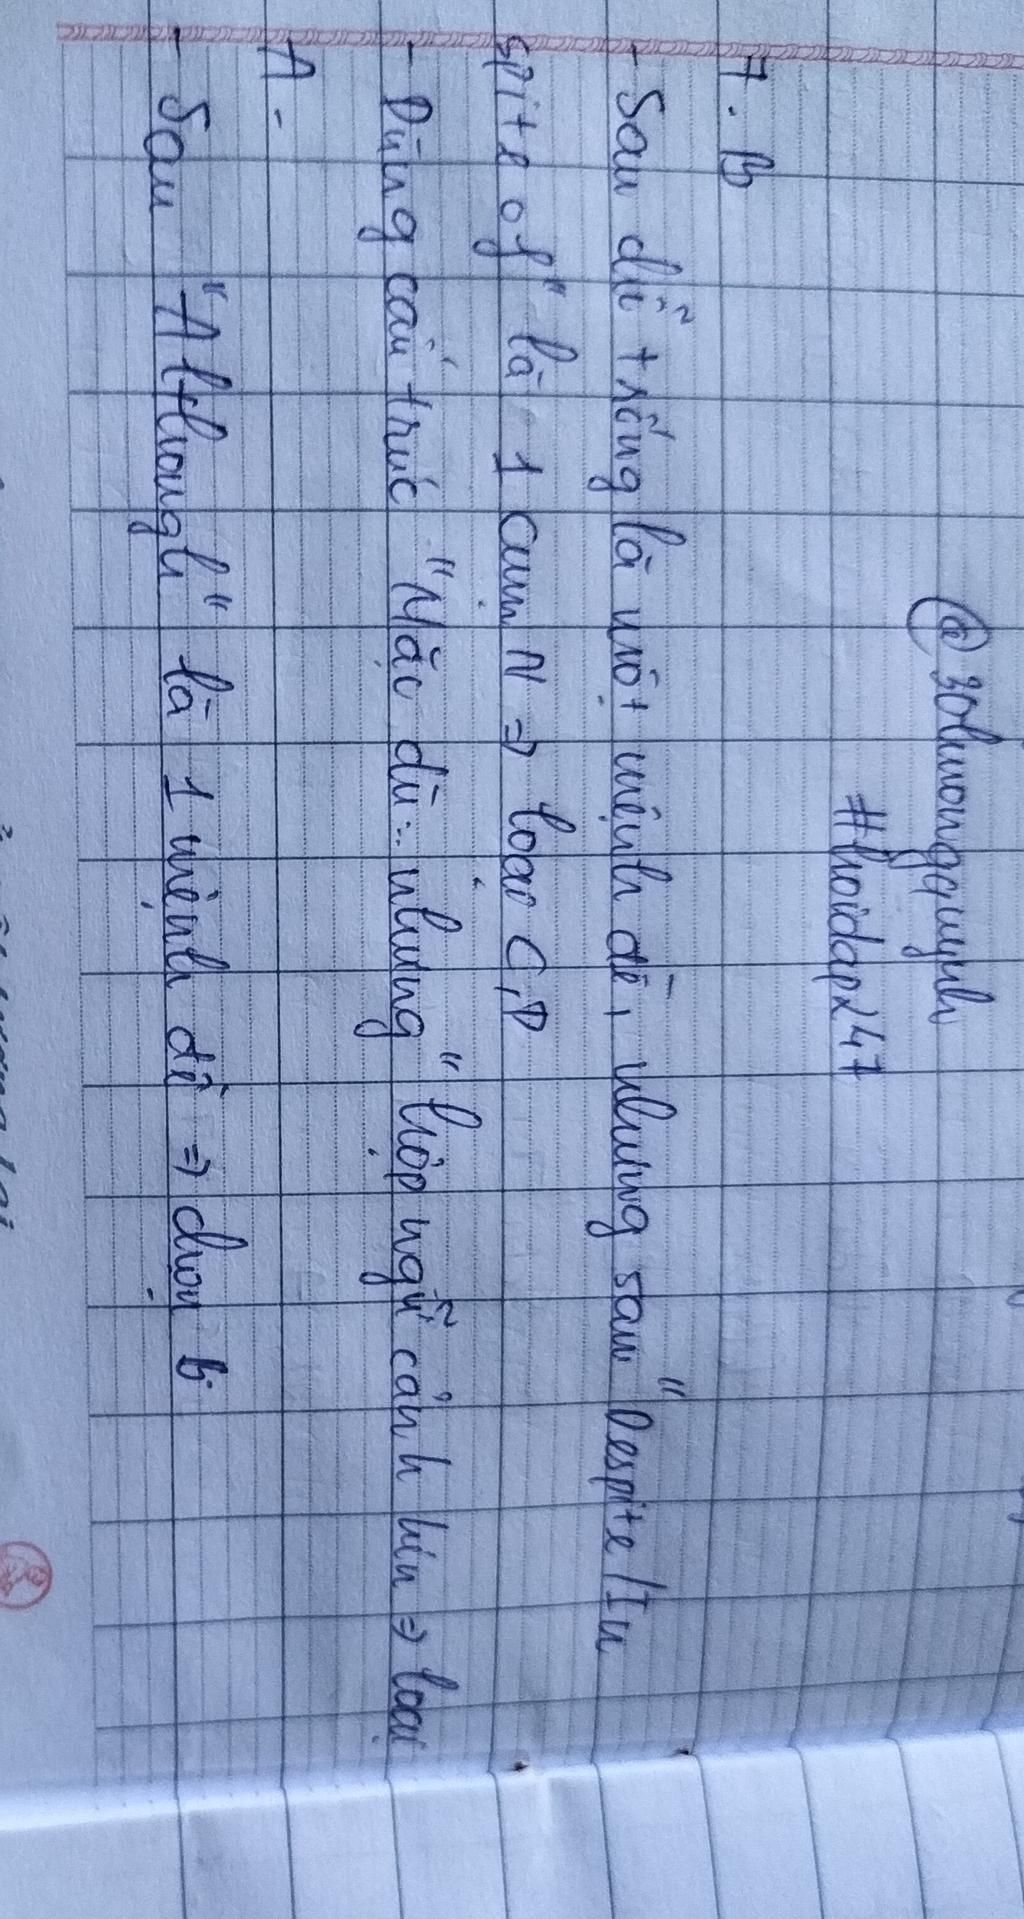 #hoidap247
7. B
- Sau dữ trống là một mệnh đề, nhưng sau "Despite/In
spite of" là 1 cụm N => loại C,D
- Dùng cấu trúc "Mặc dù... nhưng" hợp ngữ cảnh hơn => loại
A.
- Sau "Although" là 1 mệnh đề => chọn B.